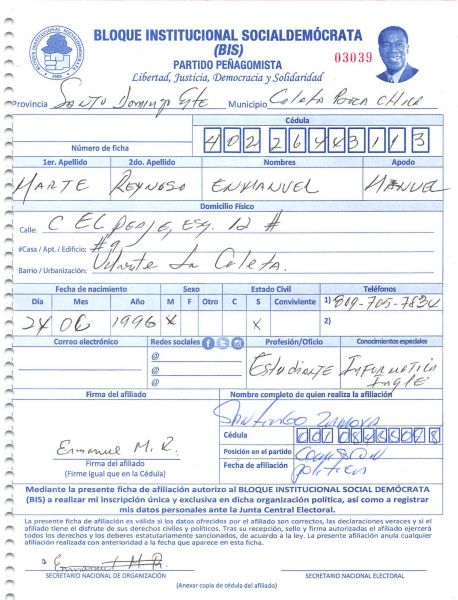 BLOQUE INSTITUCIONAL SOCIALDEMÓCRATA
(BIS)
PARTIDO PEÑAGOMISTA
03039
Libertad, Justicia, Democracia y Solidaridad
Provincia Santo Domingo Este Municipio Caleta Boca Chica
Cédula
Número de ficha 402 2644311 3
1er. Apellido 2do. Apellido Nombres Apodo
MARTE REYNOSO ENMANUEL MANUEL
Domicilio Físico
Calle: C EL PEAJE, ESQ. 12 #
#Casa / Apt. / Edificio: #9
Barrio / Urbanización: La Caleta.
Fecha de nacimiento Sexo Estado Civil Teléfonos
Día Mes Año M F Otro C S Conviviente 1) 809-705-7834
24 06 1996 X X 2)
Correo electrónico Redes sociales Profesión/Oficio Conocimientos especiales
@ Estudiante Informatica
@ Ingle
@
Firma del afiliado Nombre completo de quien realiza la afiliación
SANTIAGO ZAMORA
Cédula
Enmanuel M. R. Posición en el partido COMISION
Firma del afiliado Fecha de afiliación Politica
(Firme igual que en la Cédula)
Mediante la presente ficha de afiliación autorizo al BLOQUE INSTITUCIONAL SOCIAL DEMÓCRATA
(BIS) a realizar mi inscripción única y exclusiva en dicha organización política, así como a registrar
mis datos personales ante la Junta Central Electoral.
La presente ficha de afiliación es válida si los datos ofrecidos por el afiliado son correctos, las declaraciones veraces y si el
afiliado tiene el disfrute de sus derechos civiles y políticos. Tras su recepción, sello y firma autorizadas el afiliado ejercerá
todos los derechos y los deberes estatutariamente sancionados, de acuerdo a la ley. La presente afiliación anula cualquier
afiliación realizada con anterioridad a la fecha que aparece en esta ficha.
Enmanuel M. R.
SECRETARIO NACIONAL DE ORGANIZACIÓN SECRETARIO NACIONAL ELECTORAL
(Anexar copia de cédula del afiliado)